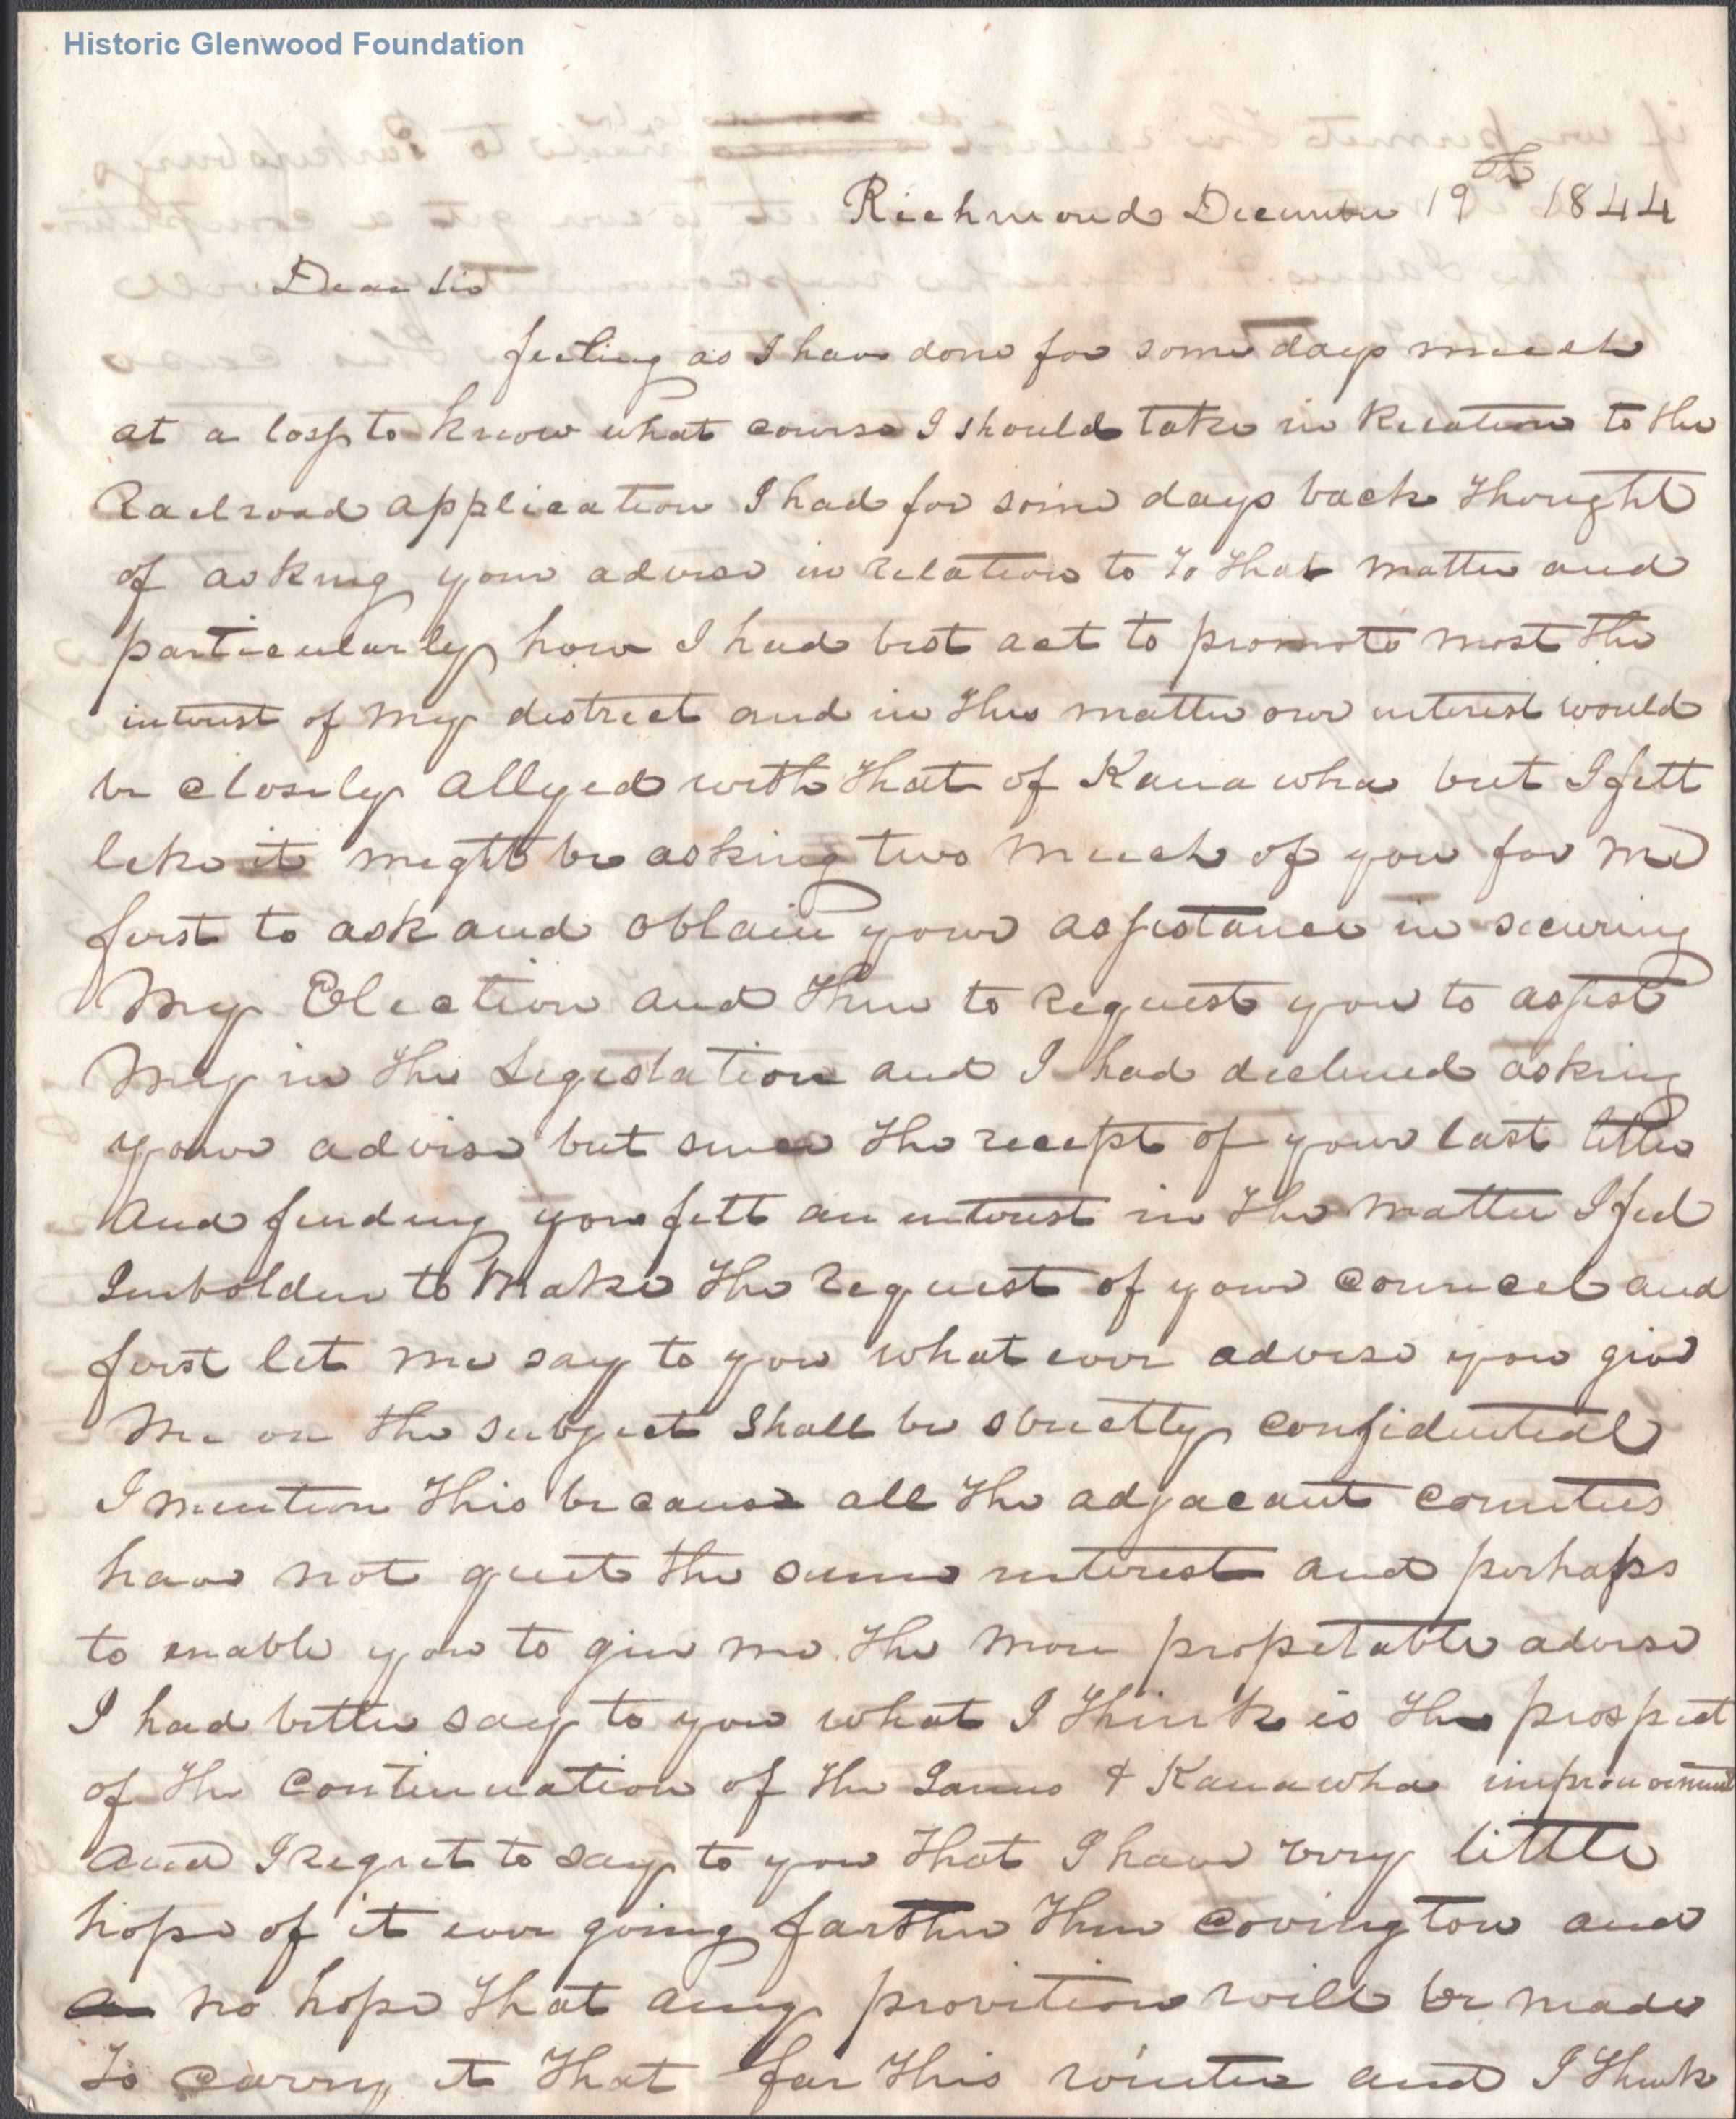 Historic Glenwood Foundation
Richmond December 19th 1844
Dear Sir
feeling as I have done for some days much
at a loss to know what course I should take in Relation to the
Railroad application I had for some days back thought
of asking your advise in relation to to that matter and
particularly how I had best act to promote most the
interest of my district and in this matter our interest would
be closely allyed with that of Kanawha but I felt
like it might be asking two much of you for me
first to ask and obtain your assistance in securing
My Election and then to request you to assist
My in the Legislation and I had declined asking
your advise but since the recept of your last letter
and finding you felt an interest in the matter I feel
Imbolden to make the request of your councel and
first let me say to you what ever advise you give
Me on the subject shall be strictly confidential
I mention this because all the adjacant counties
have not quit the same interest and perhaps
to enable you to give me the more propetable advise
I had better say to you what I think is the prospect
of the continuation of the James & Kanawha improvement
and I regret to say to you that I have very little
hope of it ever going farther then covington and
no hope that any provition will be made
To carry it that far this winter and I think